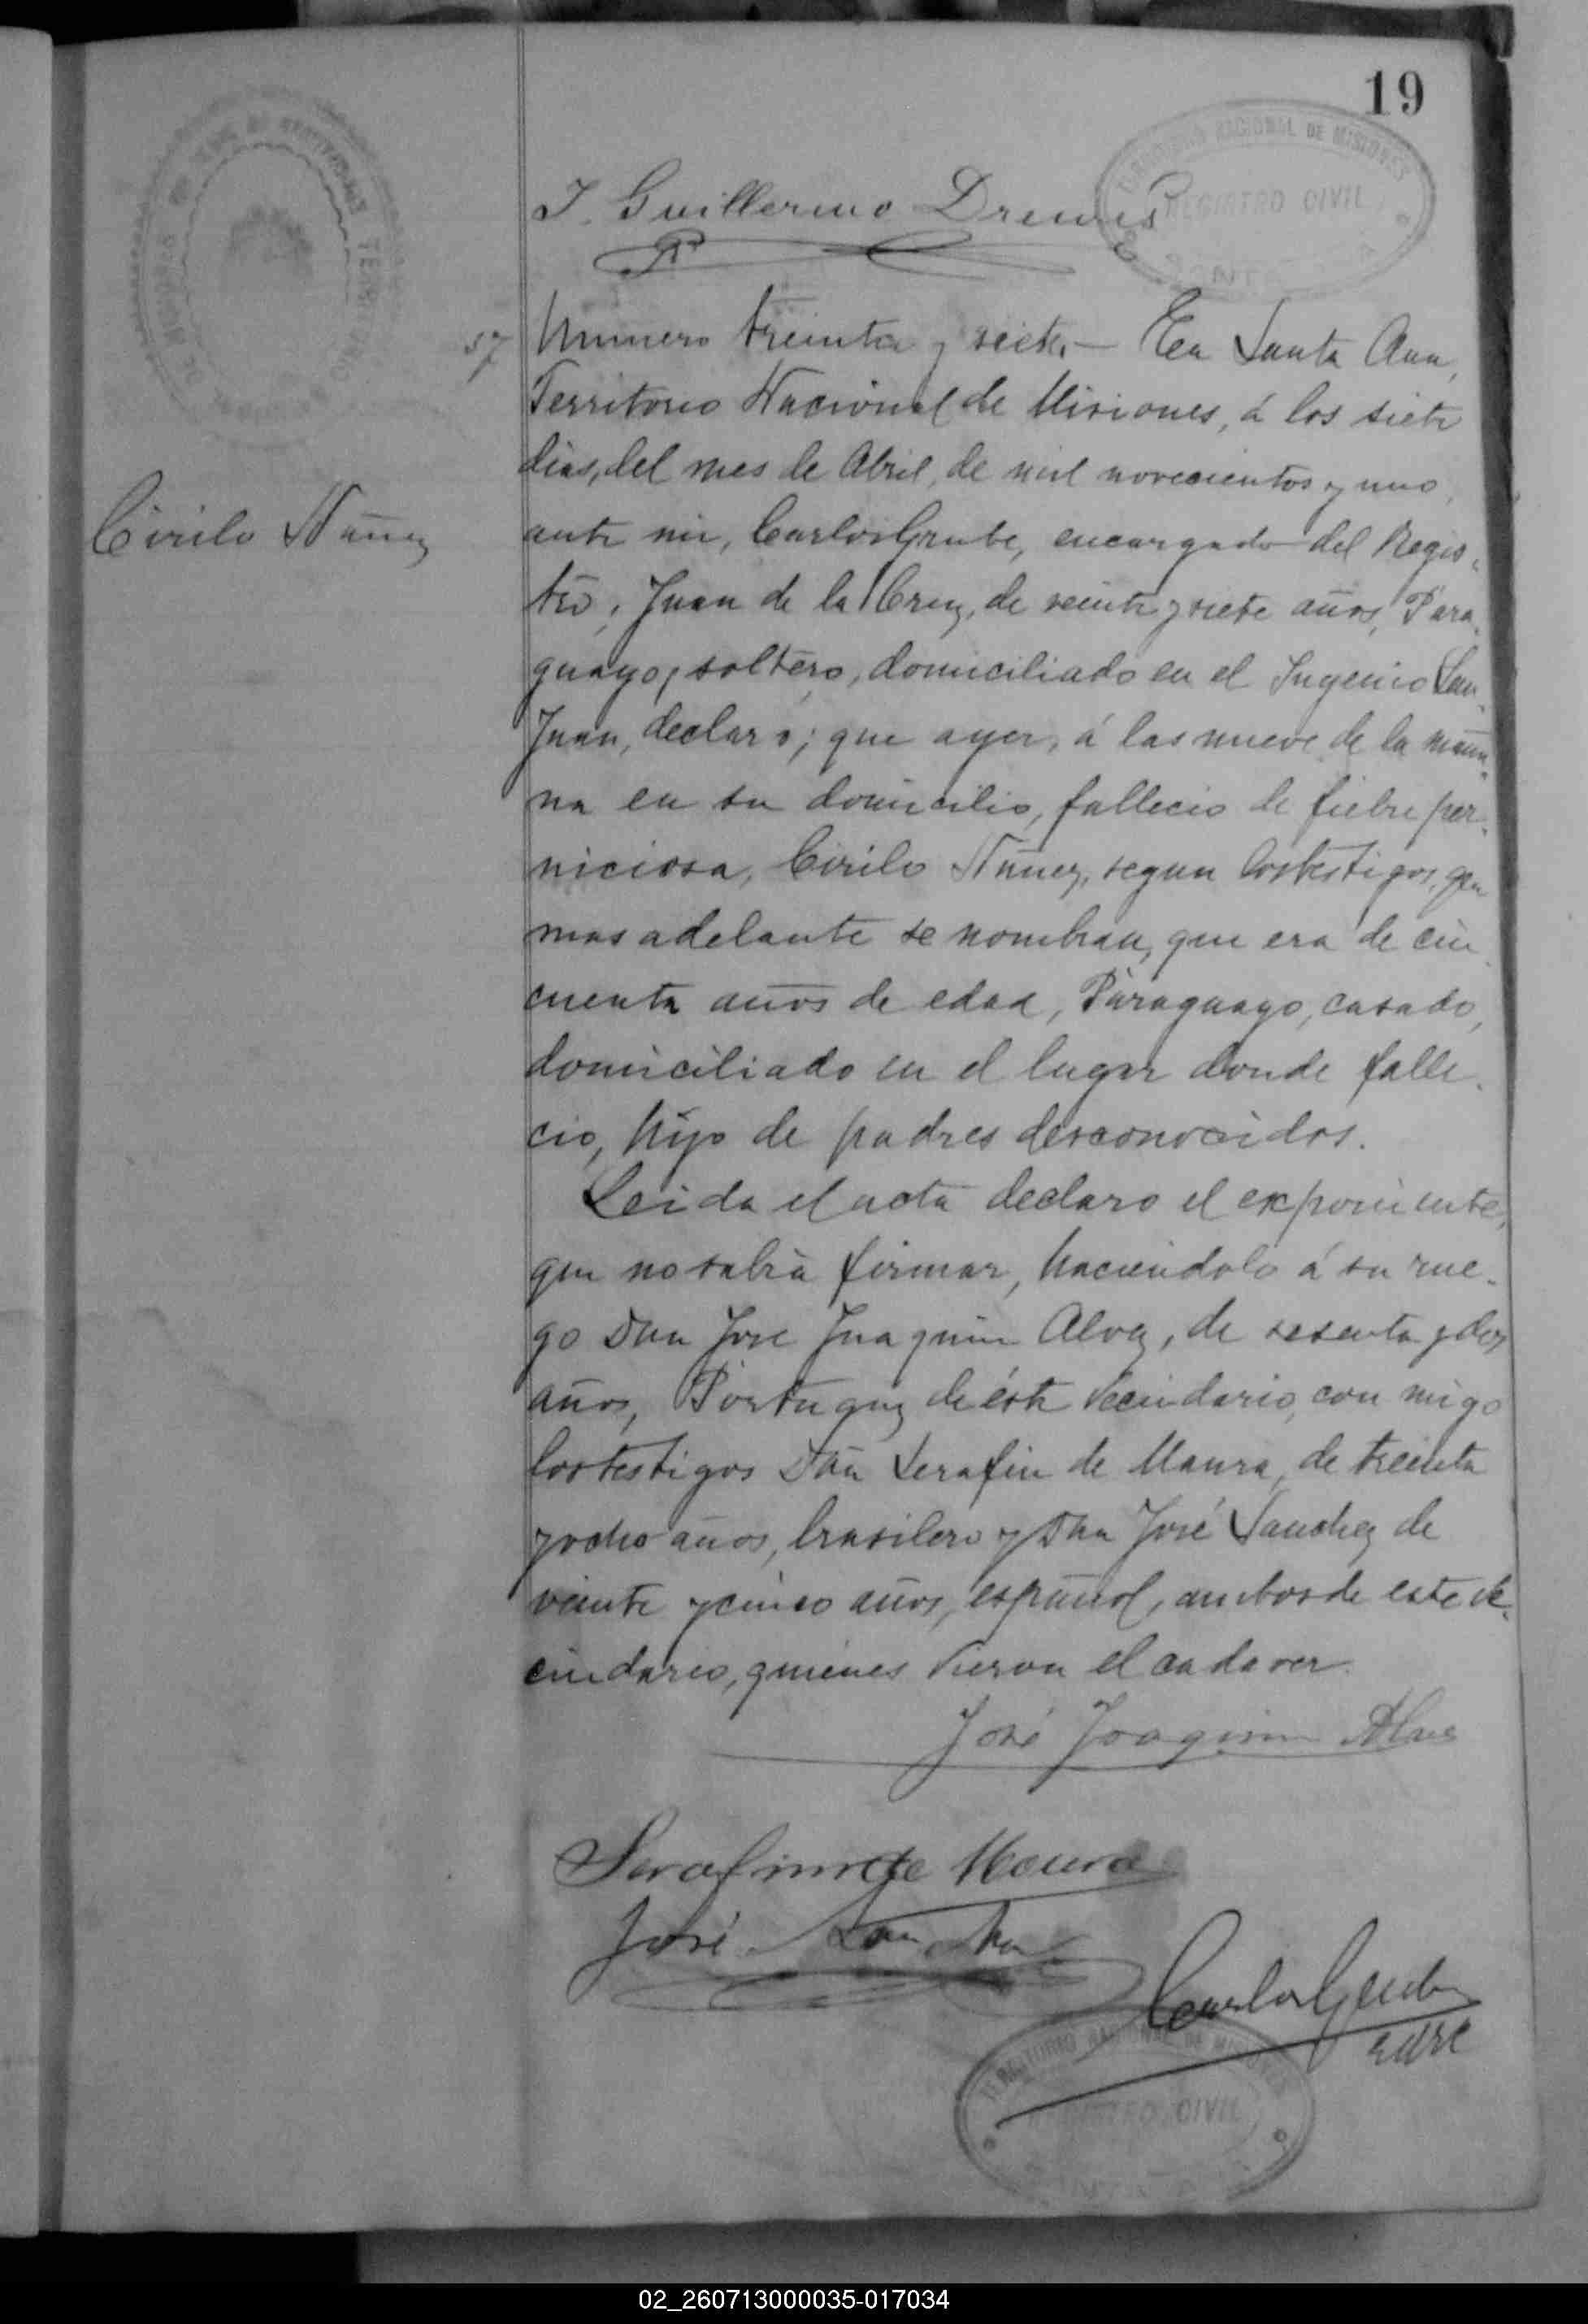 19
TERRITORIO NACIONAL DE MISIONES
REGISTRO CIVIL
J. Guillermo Drewes
37
Numero treinta y siete.— En Santa Ana,
Territorio Nacional de Misiones, á los siete
dias, del mes de Abril, de mil novecientos y uno,
Cirilo Nuñez
ante mi, Carlos Grube, encargado del Regis-
tro, Juan de la Cruz, de veinte y siete años, Para-
guayo, soltero, domiciliado en el Ingenio San
Juan, declaró; que ayer, á las nueve de la maña-
na en su domicilio, fallecio de fiebre per-
niciosa, Cirilo Nuñez, segun los testigos, que
mas adelante se nombran, que era de cin-
cuenta años de edad, Paraguayo, casado,
domiciliado en el lugar donde falle-
cio, hijo de padres desconocidos.
Leida el acta declaro el exponiente,
que no sabia firmar, haciendolo á su rue-
go Don Jose Juaquin Alvez, de sesenta y dos
años, Portuguez de éste vecindario, con migo
los testigos Don Serafin de Maura, de treinta
y ocho años, brasilero y Don José Sanchez de
veinte y cinco años, español, ambos de este ve-
cindario, quienes vieron el cadaver.
José Joaquim Alves
Serafim de Moura
José Sanchez
Carlos Grube
TERRITORIO NACIONAL DE MISIONES
REGISTRO CIVIL
02_260713000035-017034